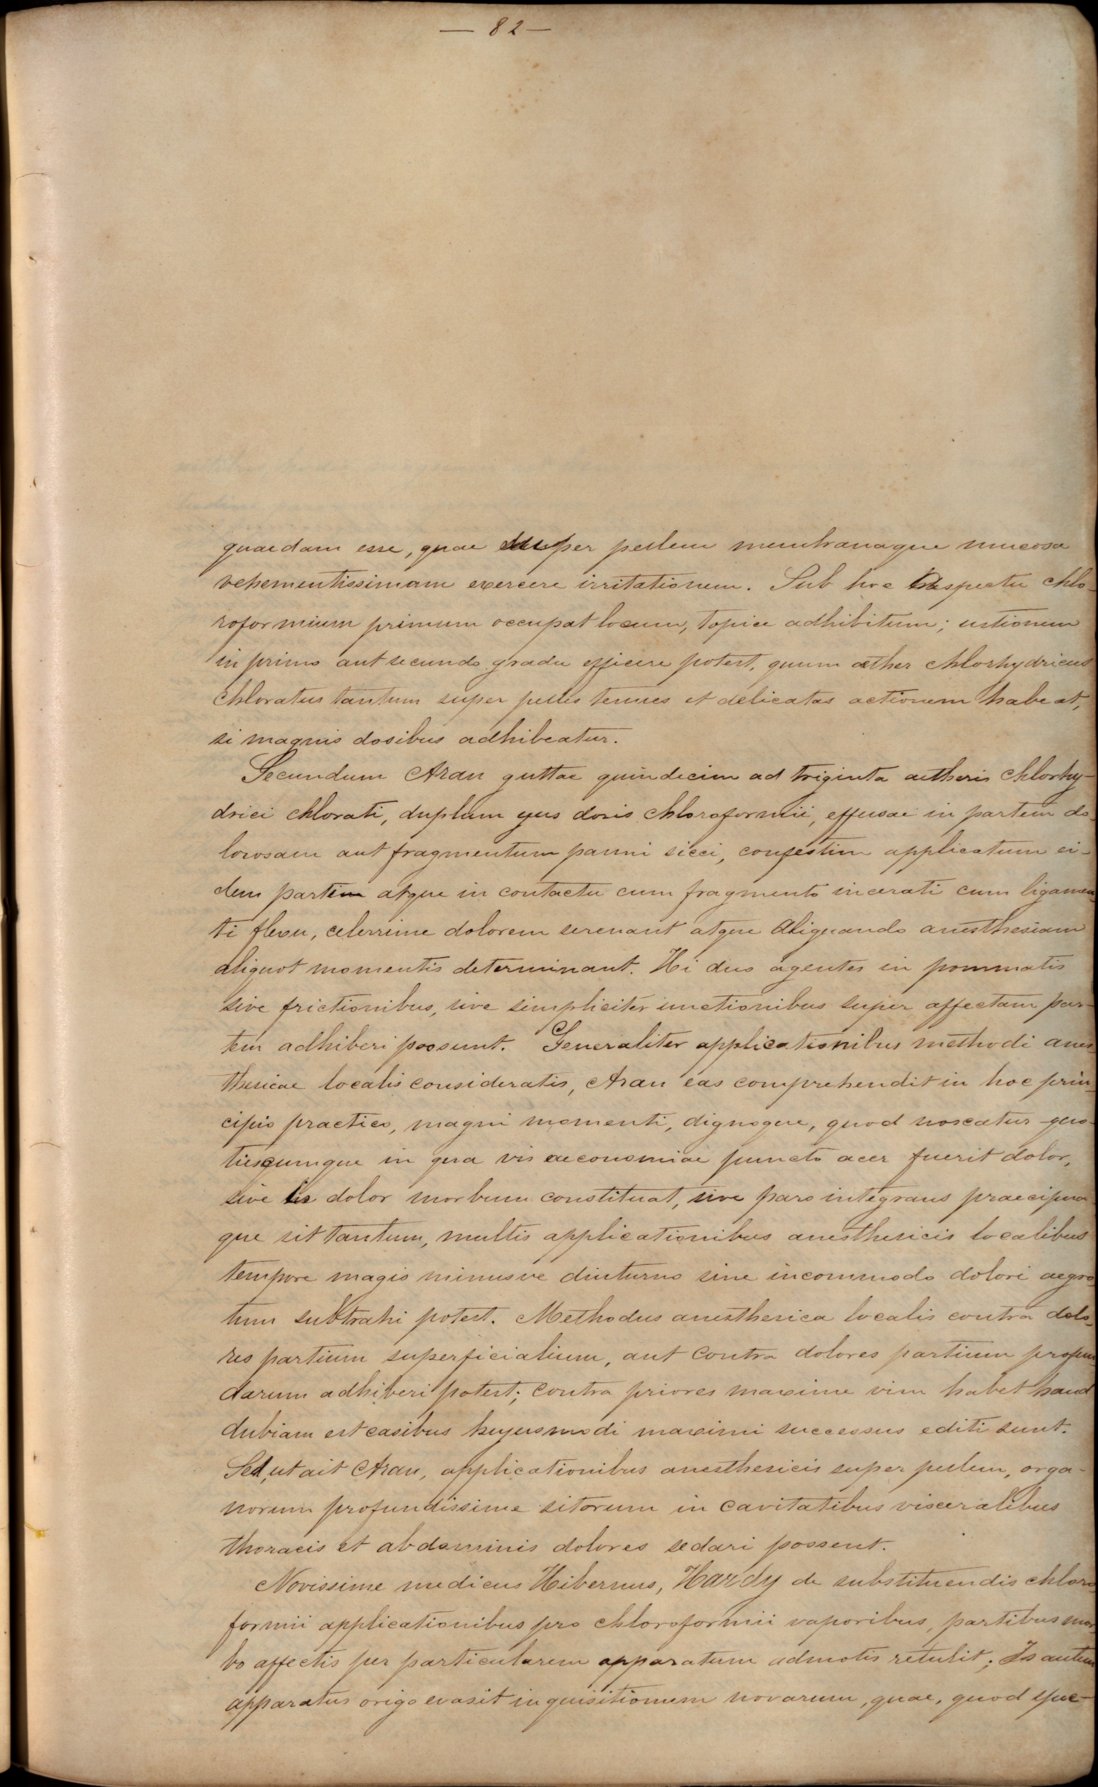 — 82 —
quaedam esse, quae super pellem membranaque mucosa
vehementissimam exercere irritationem. Sub hoc Respectu chlo-
roformium primum occupat locum, topice adhibitum; ustionem
in primo aut secundo gradu efficere potest, quum æther chlorhydricus
chloratus tantum super pelles tenues et delicatas actionem habeat,
si magnis dosibus adhibeatur.
Secundum Aran guttae quindecim ad triginta aetheris chlorhy-
drici chlorati, duplum ejus dosis chloroformii, effusae in partem do-
lorosam aut fragmentum panni sicci, confestim applicatum ei-
dem partem atque in contactu cum fragmento incerati cum ligamen-
ti flexu, celerrime dolorem serenant atque aliquando anesthesiam
aliquot momentis determinant. Hi duo agentes in pommatis
sive frictionibus, sive simpliciter unctionibus super affectam par-
tem adhiberi possunt. Generaliter applicationibus methodi anes-
thesicae localis consideratis, Aran eas comprehendit in hoc prin-
cipio practico, magni momenti, dignoque, quod noscatur quo-
tiescumque in qua vis aeconomiae puncto acer fuerit dolor,
sive is dolor morbum constituat, sive pars integrans praecipua
que sit tantum, multis applicationibus anesthesicis localibus
tempore magis minusve diuturno sine incommodo dolori aegro-
tum subtrahi potest. Methodus anesthesica localis contra dolo-
res partium superficialium, aut contra dolores partium profun
darum adhiberi potest; contra priores maxime vim habet haud
dubiam et casibus hujusmodi maximi successus editi sunt.
Sed, ut ait Aran, applicationibus anesthesicis super pellem, orga-
norum profundissime sitorum in cavitatibus visceralibus
thoracis et abdominis dolores sedari possent.
Novissime medicus Hibernus, Hardy de substituendis chloro
formii applicationibus pro chloroformii vaporibus, partibus mor
bo affectis per particularem apparatum admotis retulit; Is autem
apparatus origo evasit inquisitionem novarum, quae, quod spe-